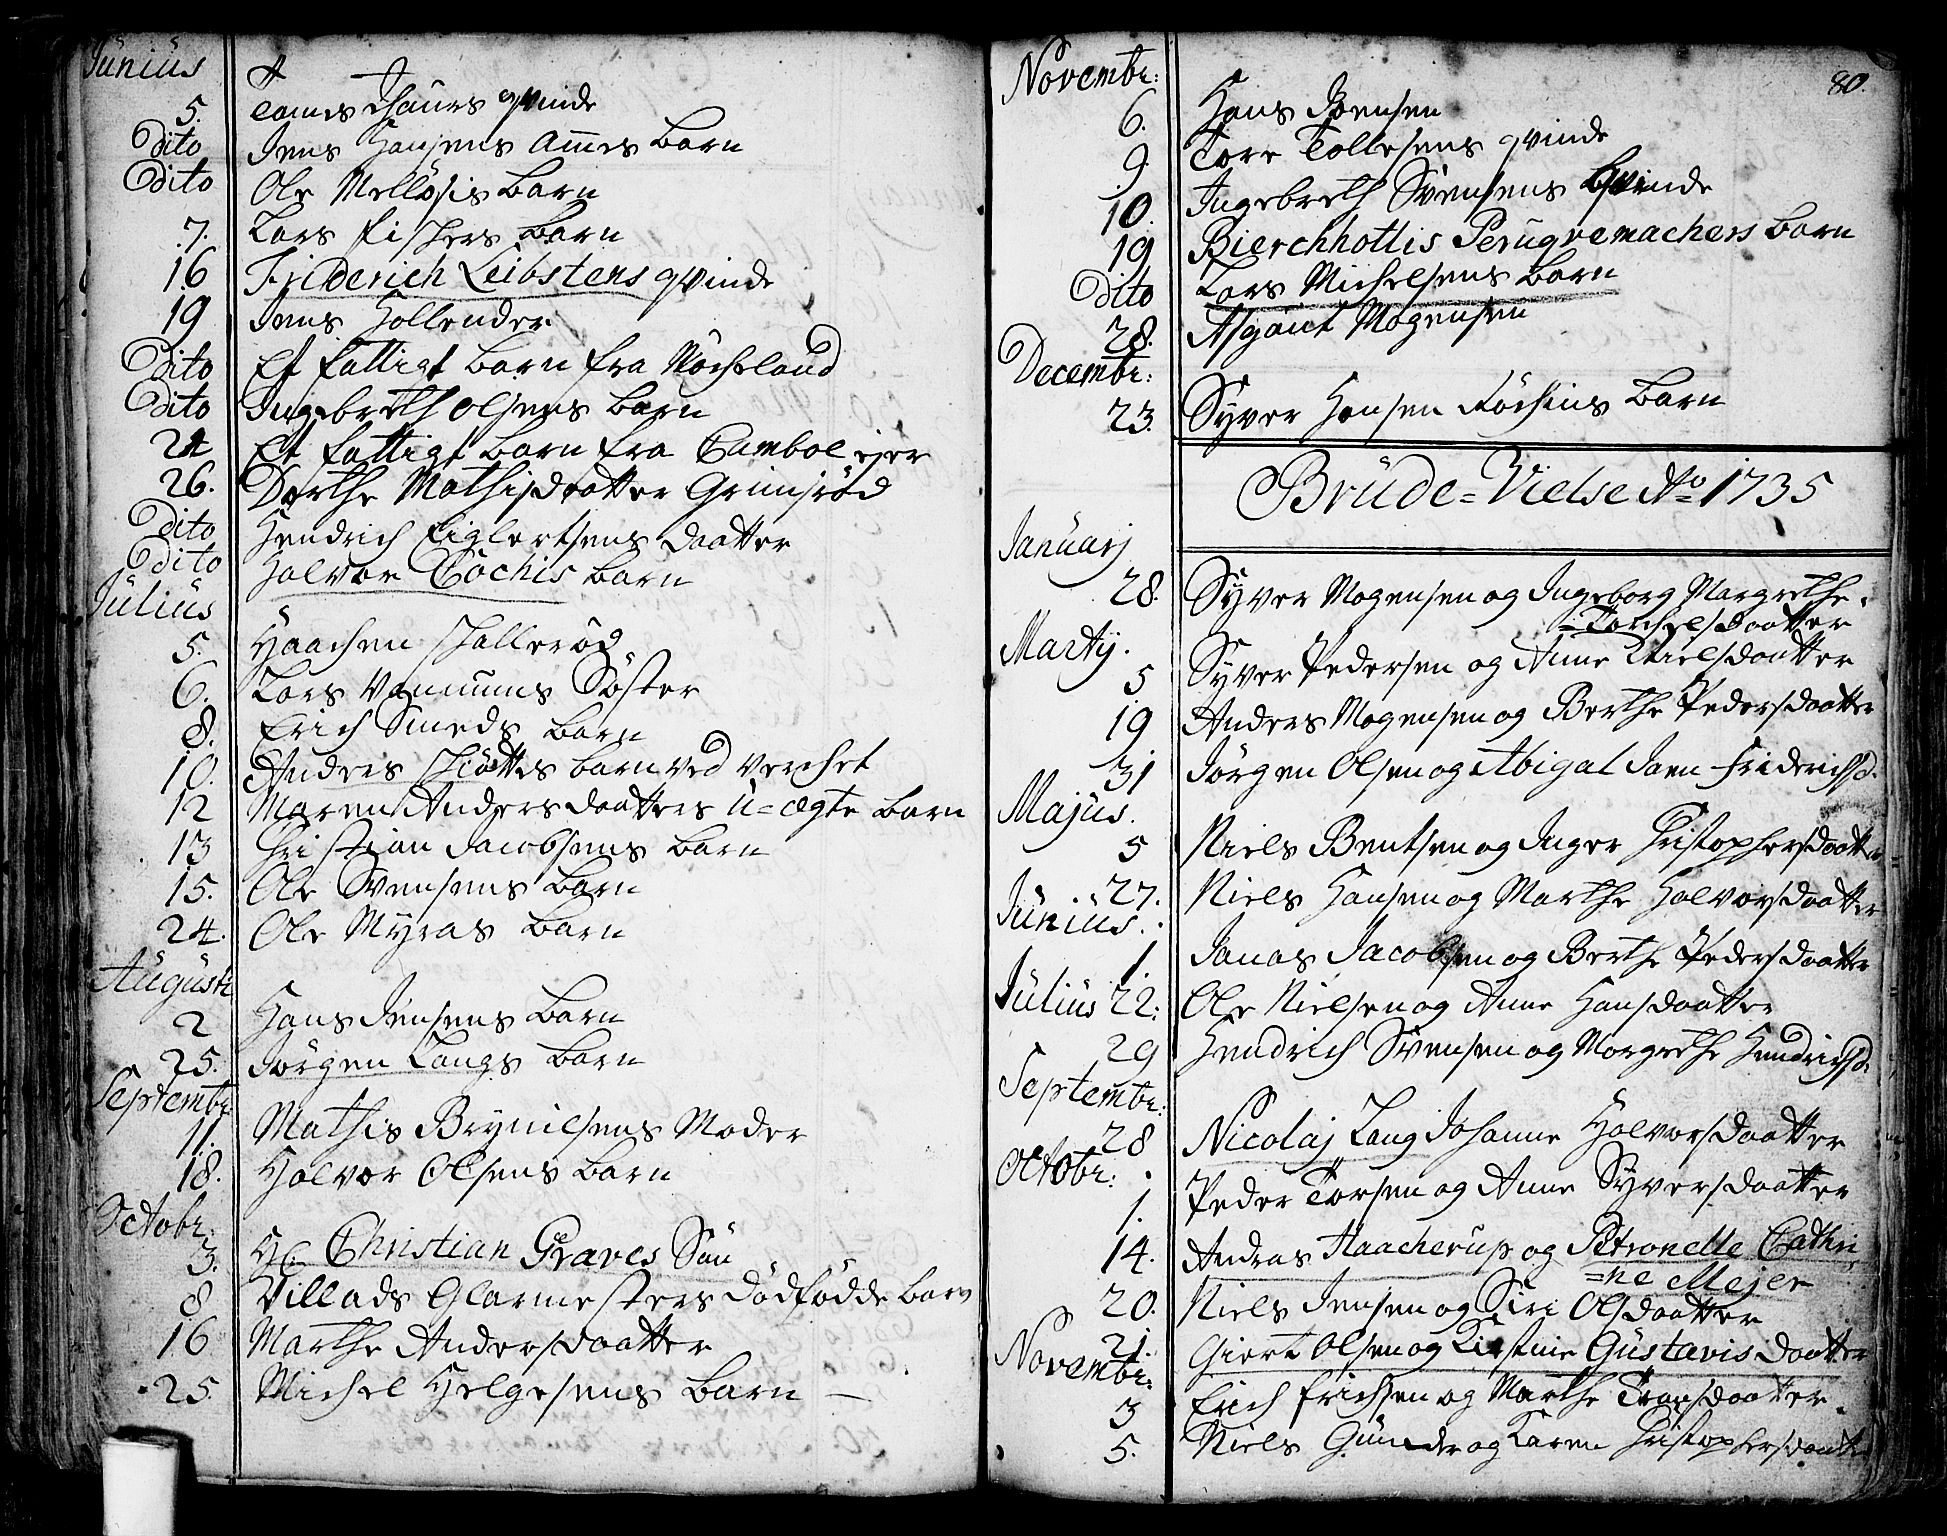 Junius
5. Tames Thaurs qvinde
Dito Jens Hansens Amms Barn
Dito Ole Mellösis Barn
7. Lars fishers Barn
16 Friderich Leibstens qvinde
19 Jens Hollender
Dito Et fattigt Barn fra Mocheland
Dito Ingebreth Olsens Barn
24 Et fattigt Barn fra Camboe eyer
26. Dorthe Mathisdaatter Grimsrød
Dito Hendrich Eiglertsens daatter
Dito Halvor Cochis Barn
Julius
5. Haachen Skallerød
6. Lars Vannums Söster
8. Erich Smeds Barn
10. Anders Skiöttes barn ved verchet
12 Maren Andersdaatters U=ægte Barn
13 Christian Jacobsens Barn
15. Ole Svensens Barn
24. Ole Myras Barn
Augusti
2 Hans Jensens Barn
25. Jörgen Langs Barn
Septembr:
11. Mathis Brynilsens Moder
18. Halvor Olsens Barn
Octobr:
3. Hr Christian Graves Sön
8 Villads Glarmesters dödfödde barn
16 Marthe Andersdaatter
25. Michel Helgesens Barn —
80.
Novembr:
6. Hans Joensen
9. Tore Tollesens qvinde
10. Ingebreth Svensens qvinde
19 Bierchhottis Peruqvemachers Barn
Dito Lars Michelsens Barn
28. Asgaut Mogensen
Decembr:
23. Syver Hansen Röchins Barn
Brude=Vielse Ao 1735
Januarj
28. Syver Mogensen og Ingeborg Margrethe
=Torchelsdaatter
Martij.
5 Syver Pedersen og Anne Nielsdaatter
19 Anders Mogensen og Berthe Pedersdaatter
31 Jörgen Olsen og Abigal Jaen Friderichsd.
Majus.
5 Niels Bentsen og Inger Christophersdaatter
27. Niels Hansen og Marthe Halvorsdaatter
Junius.
1. Jonas Jacobsen og Berthe Pedersdaatter
Julius 22: Ole Nielsen og Anne Hansdaatter
29 Hendrich Svensen og Margrethe Hendrichsd.
Septembr:
28 Nicolaj Lang Johanne Halvorsdaatter
Octobr:
1. Peder Torsen og Anne Syversdaatter
14. Andras Haacherup og Petronelle Cathri
=ne Mejer
20. Niels Jensen og Siri Olsdaatter
21. Giert Olsen og Kirstine Gustavis daatter
Novembr:
3 Erich Erichsen og Marthe Tronsdaatter.
5. Niels Gunder og Karen Christophersdaatter